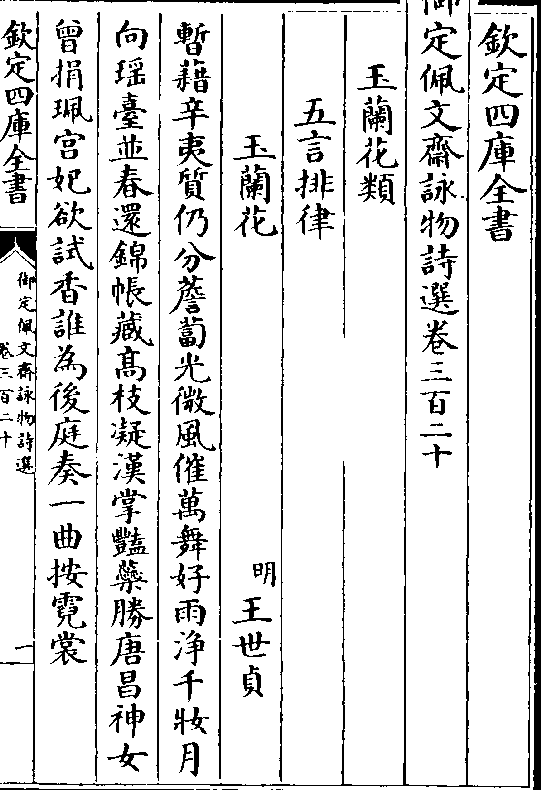 欽定四庫全書
御定佩文齋詠物詩選卷三百二十
玉蘭花類
五言排律
玉蘭花 明 王世貞
暫藉辛夷質仍分薝蔔光微風催萬舞好雨浄千妝月
向瑶臺並春還錦帳藏髙枝凝漢掌豔蘂勝唐昌神女
曾捐珮宫妃欲試香誰為後庭奏一曲按霓裳
欽定四庫全書
御定佩文齋詠物詩選
卷三百二十
一